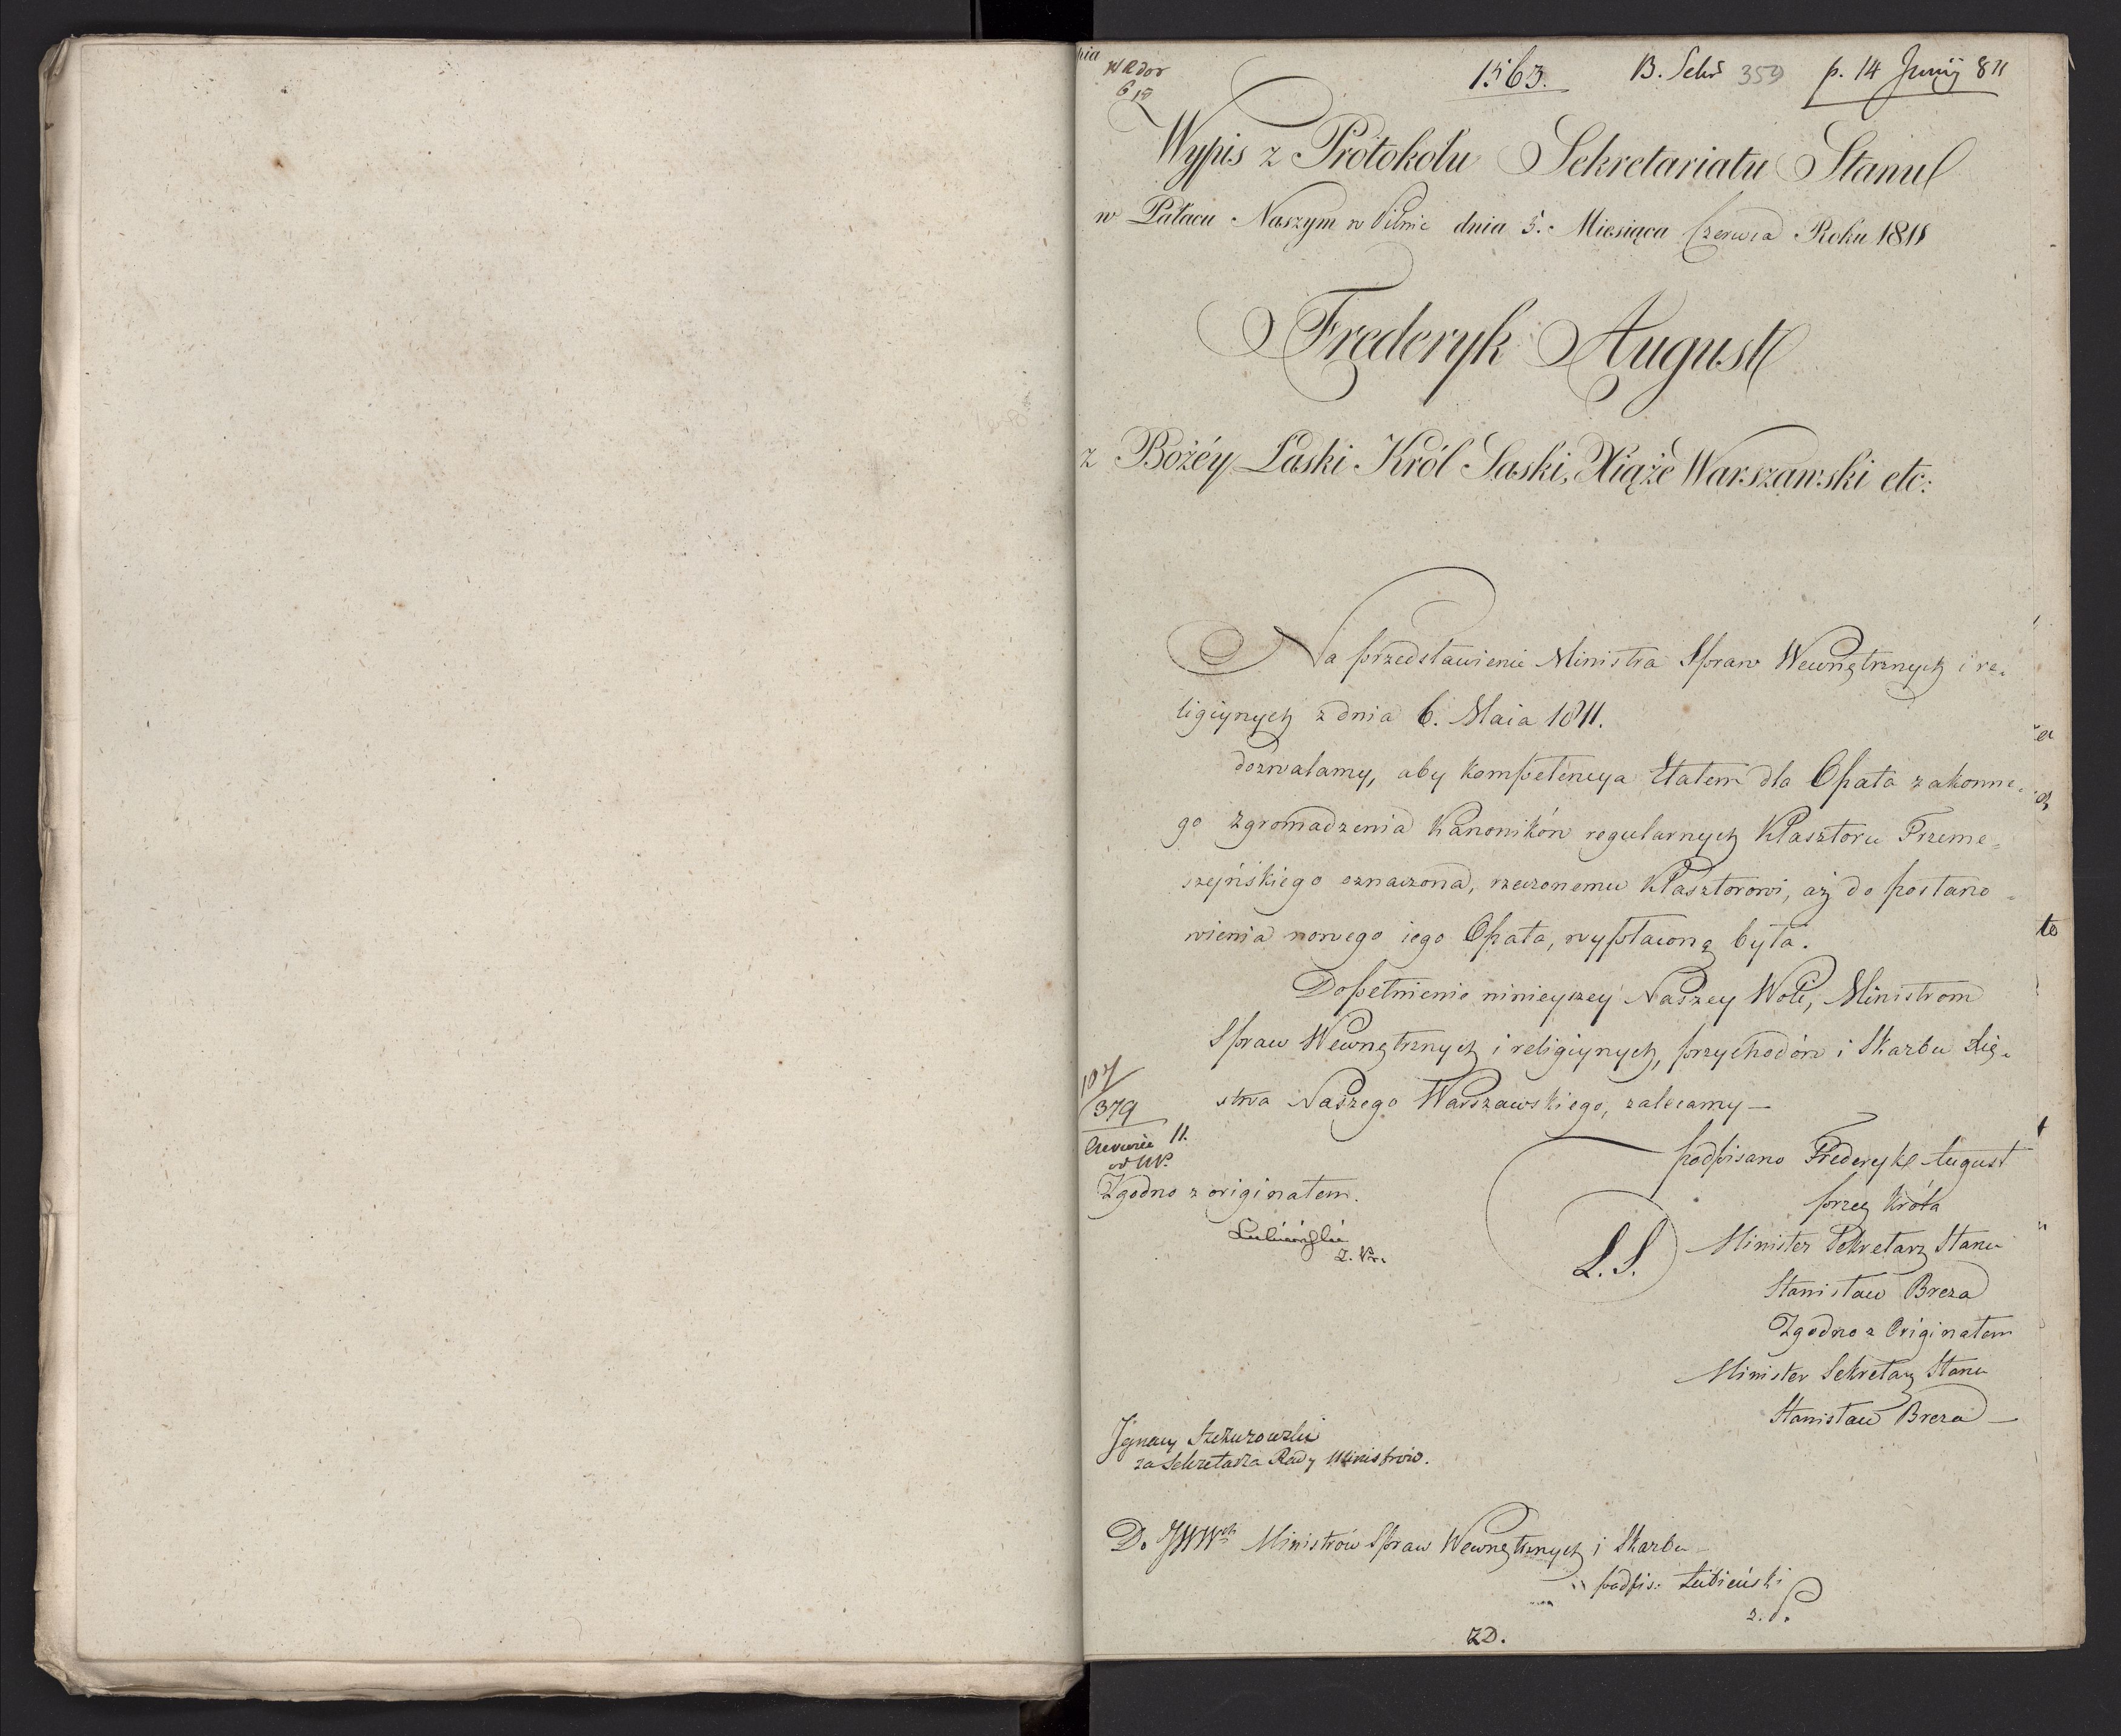 1563. B. Sekr 359 p. 14 Junij 811
Wypis z Protokołu Sekretariatu Stanu
w Pałacu Naszym w Pilnie dnia 5. Miesiąca Czerwca Roku 1811
Frederyk August
z Bożéy Łaski Król Saski, Xiąże Warszawski etc:
Na przedstawienie Ministra Spraw Wewnętrznych i re-
ligiynych z dnia 6. Maia 1811.
dozwalamy, aby kompetencya Etatem dla Opata zakonne-
go zgromadzenia Kanoników regularnych Klasztoru Trzeme-
szeńskiego oznaczona, rzeczonemu Klasztorowi, aż do postano-
wienia nowego iego Opata, wypłaconą była.
Dopełnienie ninieyszey Naszey Woli, Ministrom
Spraw Wewnętrznych i religiynych, przychodów i Skarbu Xię-
stwa Naszego Warszawskiego, zalecamy —
107/379
podpisano Frederyk August
przez Króla
Zgodno z originałem.
Minister Sekretarz Stanu
L.S.
Stanisław Breza
Zgodno z Originałem
Minister Sekretarz Stanu
Stanisław Breza —
Ignacy Szczurowski
za Sekretarza Rady Ministrów.
Do JWWch Ministrów Spraw Wewnętrznych i Skarbu
podpis: Łubieński
ZD.